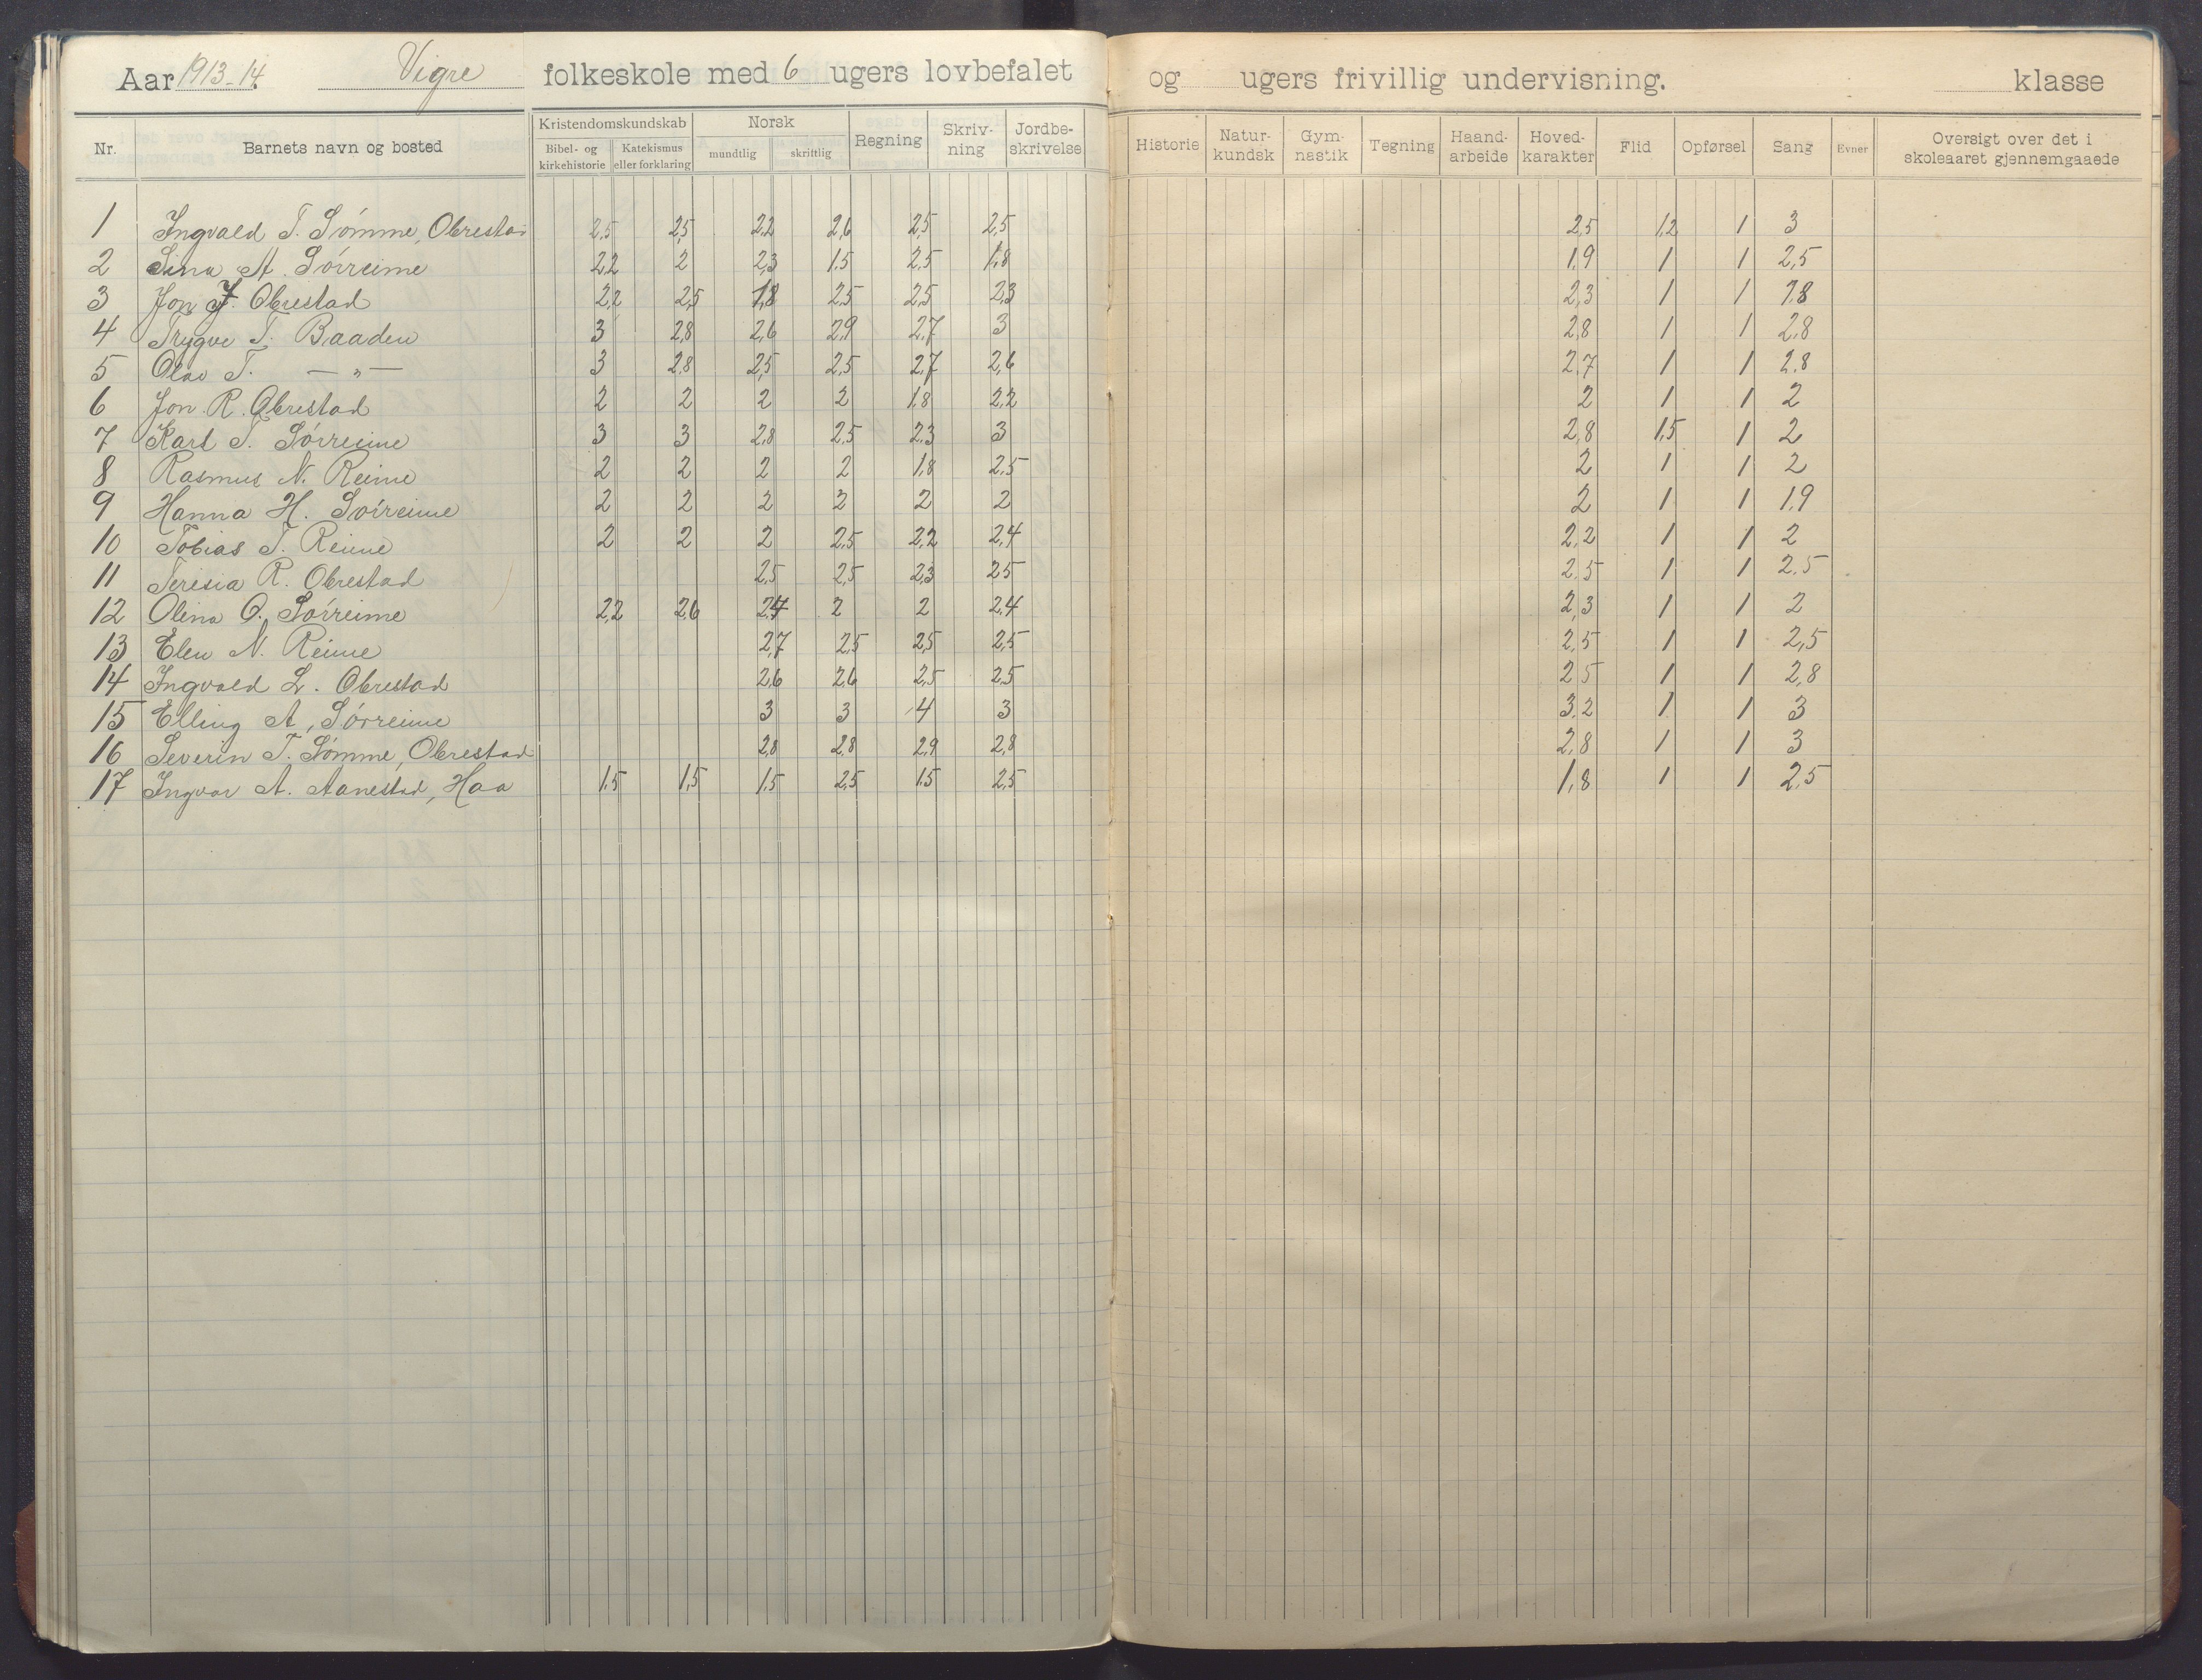 Aar 1913-14. Vigre folkeskole med 6 ugers lovbefalet og ugers frivillig undervisning. klasse
Nr. Barnets navn og bosted Kristendomskundskab Bibel- og kirkehistorie Katekismus eller forklaring Norsk mundtlig skriftlig Regning Skriv-ning Jordbe-skrivelse Historie Natur-kundsk Gym-nastik Tegning Haand-arbeide Hoved-karakter Flid Opførsel Sang Evner Oversigt over det i skoleaaret gjennemgaaede
1 Ingvald T. Sømme, Obrestad 2,5 2,5 2,2 2,6 2,5 2,5 2,5 1,2 1 3
2 Sina A. Sørreime 2,2 2 2,3 1,5 2,5 1,8 1,9 1 1 2,5
3 Jon J. Obrestad 2,2 2,5 1,8 2,5 2,5 2,3 2,3 1 1 1,8
4 Trygve T. Baaden 3 2,8 2,6 2,9 2,7 3 2,8 1 1 2,8
5 Olav T. — " — 3 2,8 2,5 2,5 2,7 2,6 2,7 1 1 2,8
6 Jon R. Obrestad 2 2 2 2 1,8 2,2 2 1 1 2
7 Karl T. Sørreime 3 3 2,8 2,5 2,3 3 2,8 1,5 1 2
8 Rasmus N. Reime 2 2 2 2 1,8 2,5 2 1 1 2
9 Hanna H. Sørreime 2 2 2 2 2 2 2 1 1 1,9
10 Tobias T. Reime 2 2 2 2,5 2,2 2,4 2,2 1 1 2
11 Teresia R. Obrestad 2,5 2,5 2,3 2,5 2,5 1 1 2,5
12 Olina O. Sørreime 2,2 2,6 2,4 2 2 2,4 2,3 1 1 2
13 Elen N. Reime 2,7 2,5 2,5 2,5 2,5 1 1 2,5
14 Ingvald L. Obrestad 2,6 2,6 2,5 2,5 2,5 1 1 2,8
15 Elling A. Sørreime 3 3 4 3 3,2 1 1 3
16 Severin T. Sømme, Obrestad 2,8 2,8 2,9 2,8 2,8 1 1 3
17 Ingvar A. Aanestad, Haa 1,5 1,5 1,5 2,5 1,5 2,5 1,8 1 1 2,5